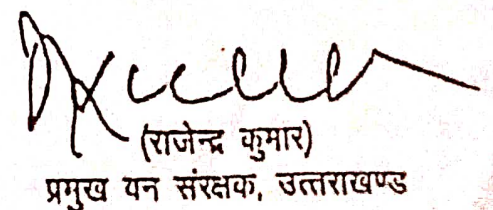 (राजेन्द्र कुमार)
प्रमुख वन संरक्षक, उत्तराखण्ड